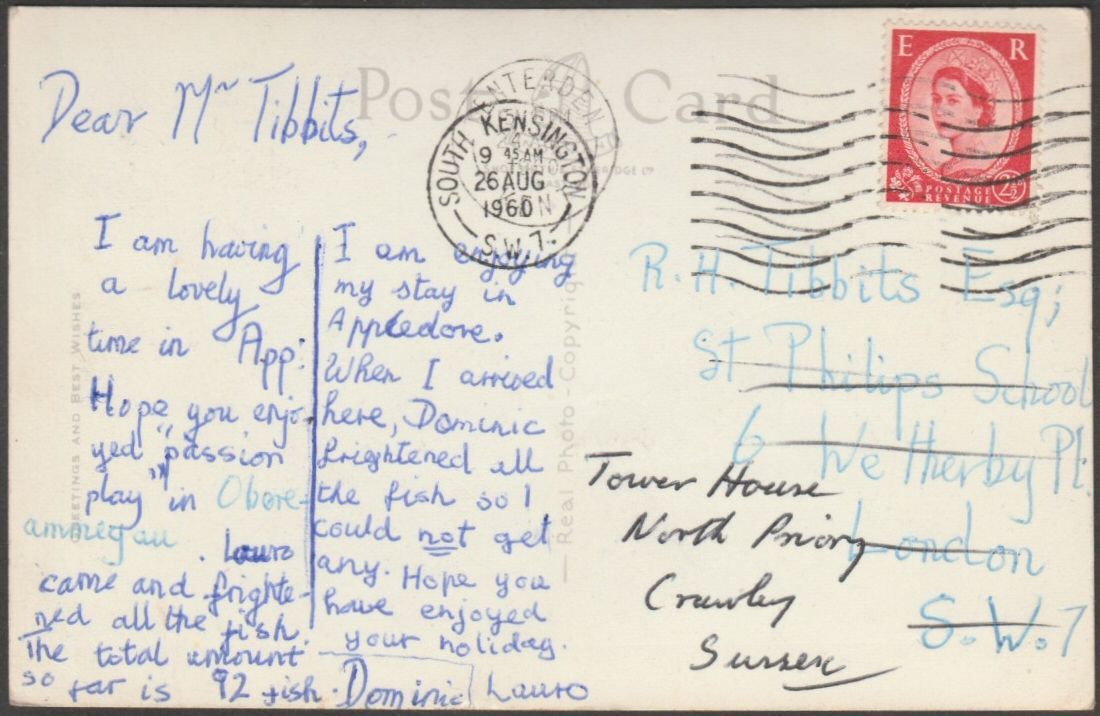 Post Card
E R
POSTAGE
REVENUE
2½D
SOUTH KENSINGTON
9 45 AM
26 AUG
1960
S.W.7.
Dear Mr Tibbits,
I am having
a lovely
time in App:
Hope you enjo-
yed "passion
play" in Obore-
ammergau
. Lauro
came and frighte-
ned all the fish.
The total amount
so far is 92 fish. Dominic
I am enjoying
my stay in
Appledore.
When I arrived
here, Dominic
frightened all
the fish so I
could not get
any. Hope you
have enjoyed
your holiday.
Lauro
R.H. Tibbits Esq;
St Philips School
6 Wetherby Pl.
London
S.W.7
Tower House
North Priory
Crawley
Sussex
GREETINGS AND BEST WISHES
Real Photo - Copyright